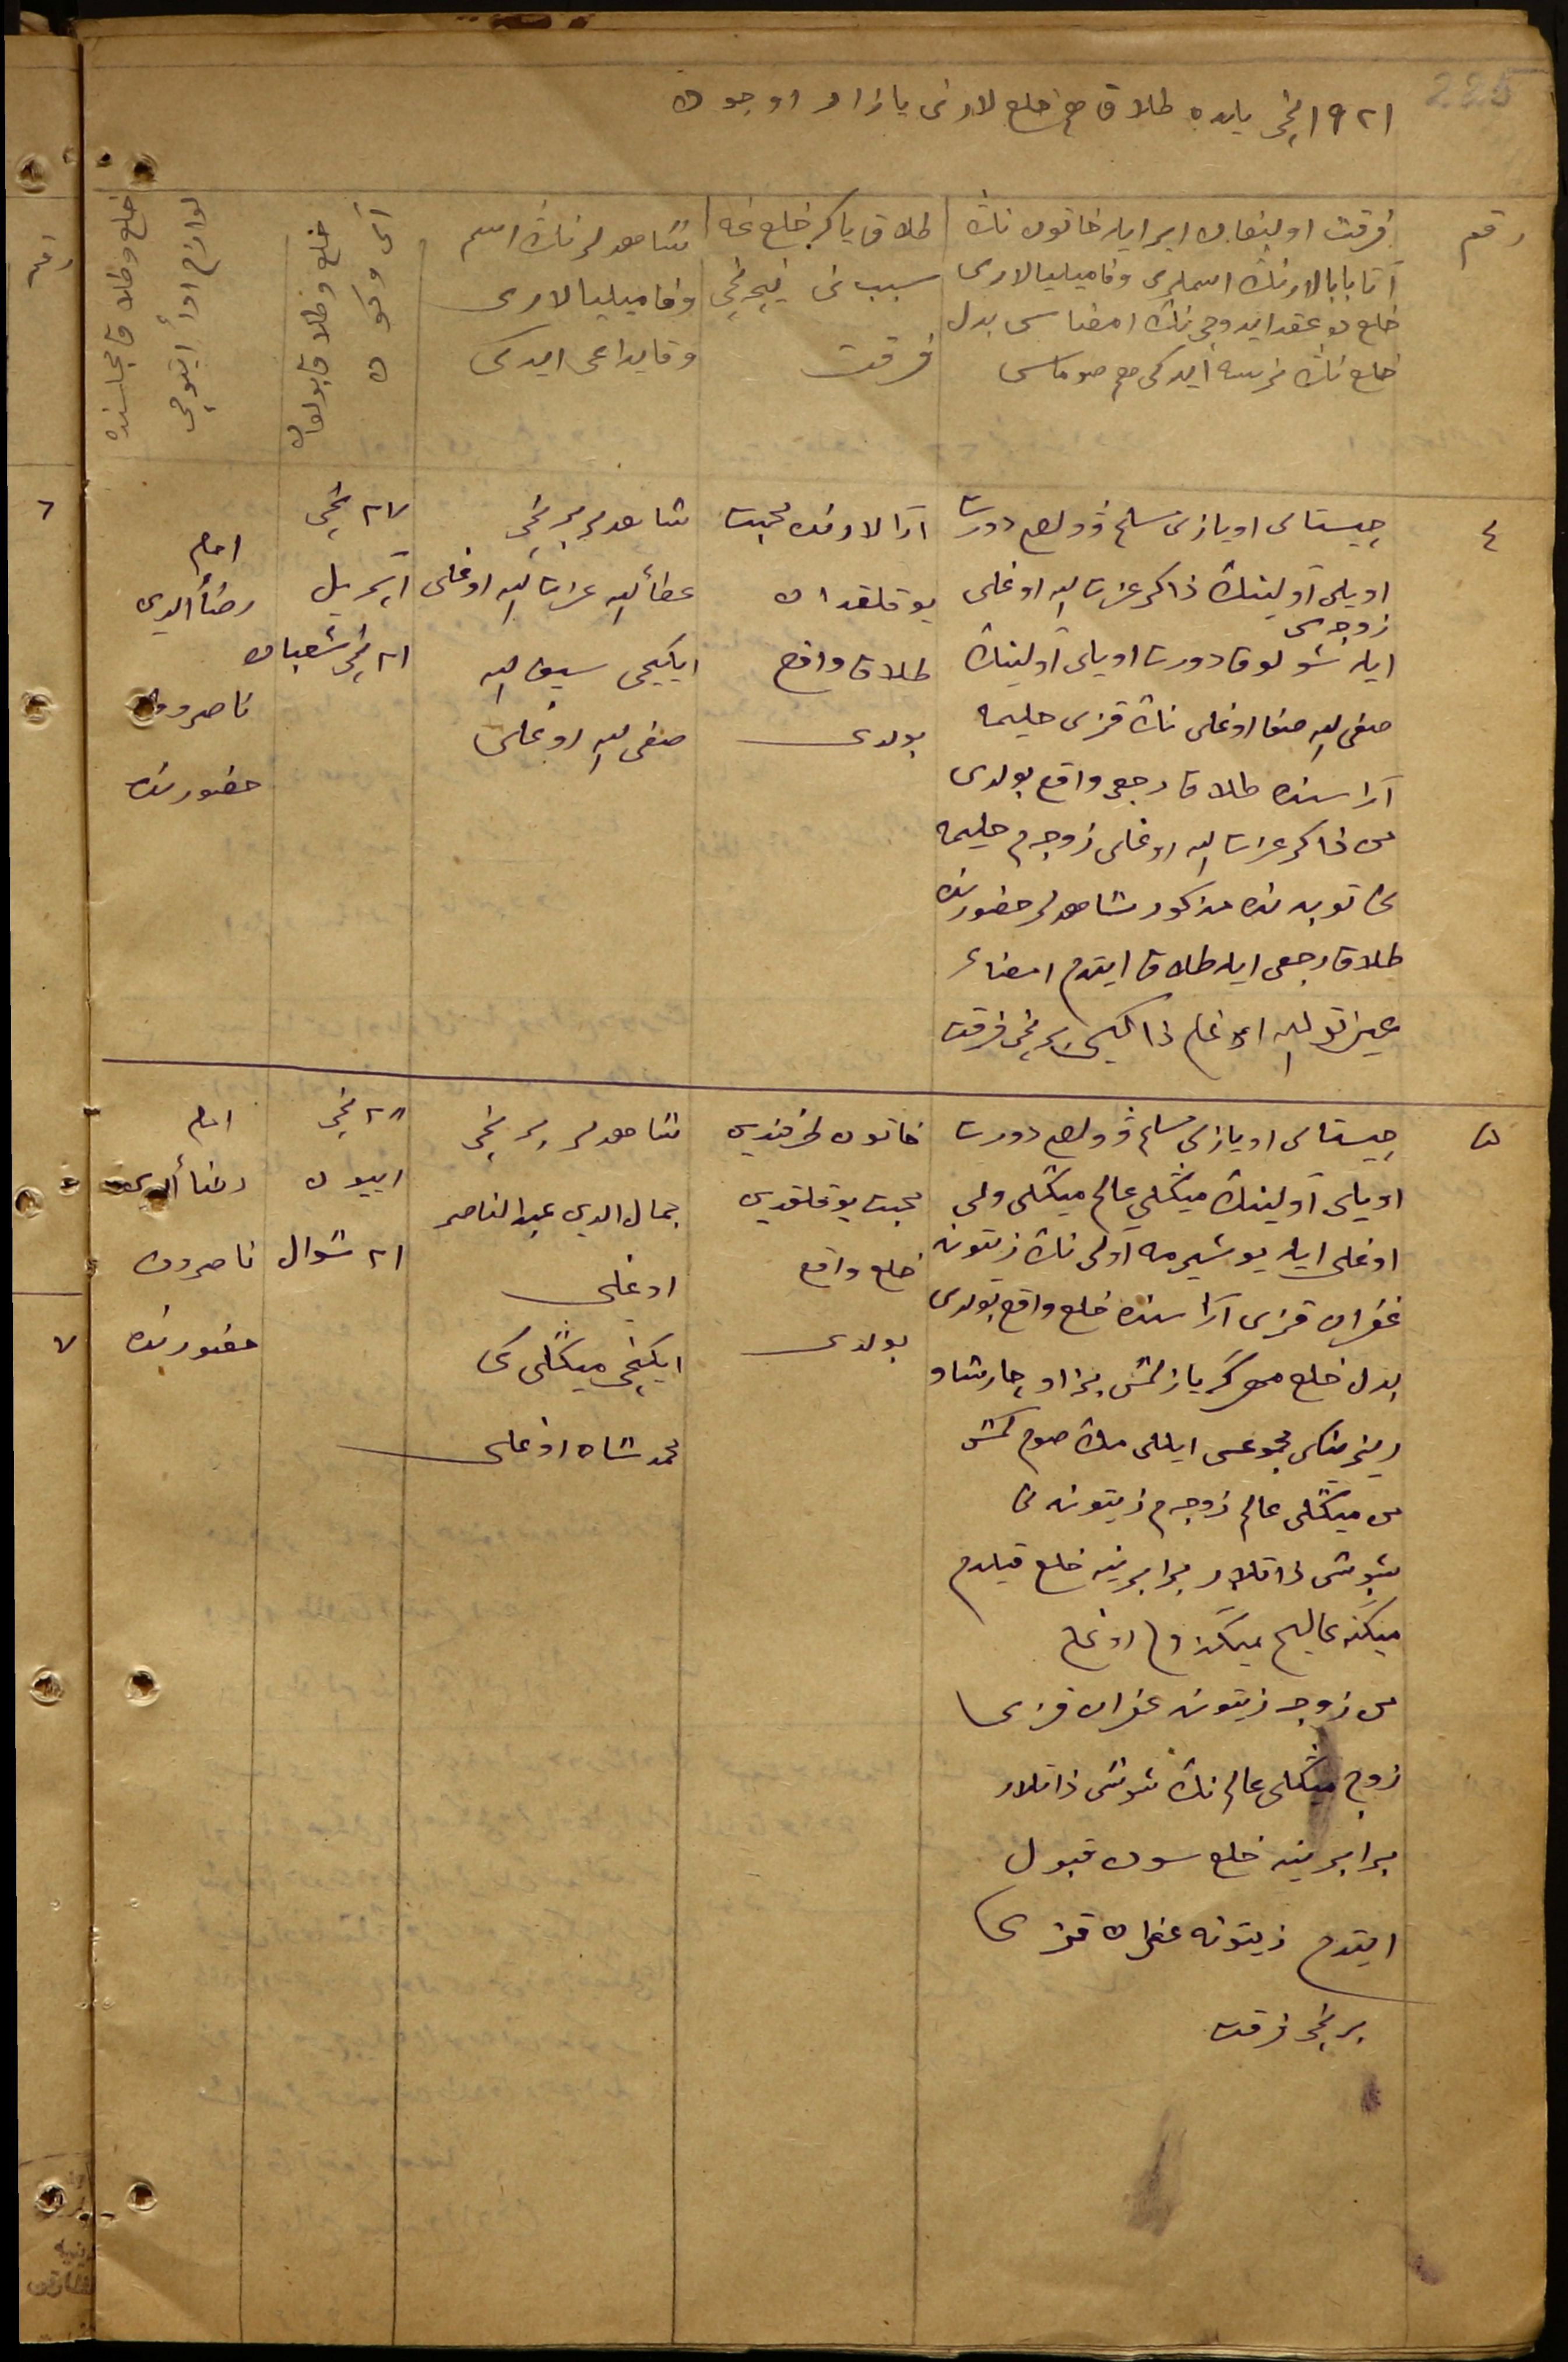 225
١٩٢١ نچی یلده طلاق هم خلع لارنی یازار اوچون
رقم
فرقت اولنغان ایر ایله خاتون ننڭ
آتا بابالارینڭ اسملری وفامیلیالاری
خلع دە عقد ایدوچی ننڭ امضاسی بدل
خلع ننڭ نرسه ایدکی هم صوماسی
طلاق یاکه خلع غه
سبب نی نیچه نچی
فرقت
شاهدلرننڭ اسم
وفامیلیالاری
وقایدا غی ایدکی
آی و کون
خلع و طلاق بولغان
لوازم ادأ ایتوچی
خلع و طلاق مجلسنده
رقم
٤
چیستای اویازی مسلم وولصی دورت
اویلی آولینڭ ذاکر عزت الله اوغلی
زوجه سی
ایله شولوق دورت اویلی آولینڭ
صفی الله صفا اوغلی ننڭ قزی حلیمه
آراسنده طلاق رجعی واقع بولدی
من ذاکر عزت الله اوغلی زوجه م حلیمه
نی توبه نده مذکور شاهدلر حضورنده
طلاق رجعی ایله طلاق ایتدم امضاء
برنچی فرقت
آرالارنده محبت
یوقلقدان
طلاق واقع
بولدی
شاهدلر برنچی
عطأ الله عزت الله اوغلی
ایکنچی سیف الله
صفی الله اوغلی
٢٧ نچی
آپریل
٢١ نچی شعبان
امام
رضأ الدین
ناصروف
حضورنده
٦
٥
چیستای اویازی مسلم وولصی دورت
اویلی آولینڭ میڭلی عالم میڭلی ولی
اوغلی ایله یوشیرمه آولی ننڭ زیتونه
غفران قزی آراسنده خلع واقع بولدی
بدل خلع مهرگه یازلمش بزاو چارشاو
مجموعسی ایللی مڭ صوم
من میڭلی عالم زوجه م زیتونه نی
شوشی ذاتلار برابرینه خلع قیلدم
من زوجه زیتونه غفران قزی
زوجم میڭلی عالم ننڭ شوشی ذاتلار
برابرینه خلع سون قبول
ایتدم زیتونه غفران قزی
برنچی فرقت
خاتون طرفندن
محبت یوقلقدن
خلع واقع
بولدی
شاهدلر برنچی
جمال الدین عبدالناصر
اوغلی
ایکنچی میڭلی
محمد شاه اوغلی
٢٨ نچی
اییون
٢١ شوال
امام
رضأ الدین
ناصروف
حضورنده
٧